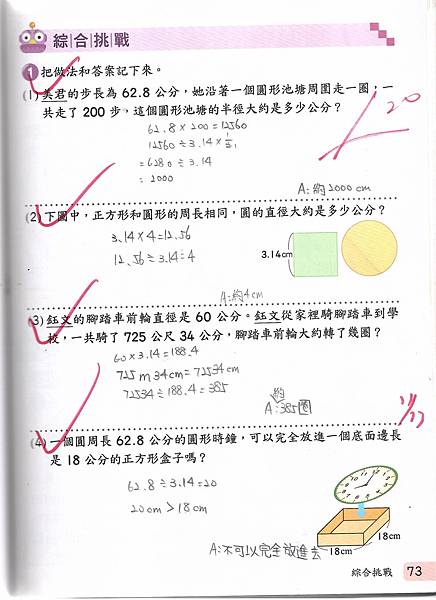 綜合挑戰
1 把做法和答案記下來。
(1) 美君的步長為 62.8 公分，她沿著一個圓形池塘周圍走一圈；一
共走了 200 步，這個圓形池塘的半徑大約是多少公分？
20
62.8×200=12560
12560÷3.14×1/2
=6280÷3.14
=2000
A:約2000cm
(2) 下圖中，正方形和圓形的周長相同，圓的直徑大約是多少公分？
3.14×4=12.56
12.56÷3.14=4
3.14cm
A:約4cm
(3) 鈺文的腳踏車前輪直徑是 60 公分。鈺文從家裡騎腳踏車到學
校，一共騎了 725 公尺 34 公分，腳踏車前輪大約轉了幾圈？
60×3.14=188.4
725m34cm=72534cm
72534÷188.4=385
約
A:385圈
(4) 一個圓周長 62.8 公分的圓形時鐘，可以完全放進一個底面邊長
是 18 公分的正方形盒子嗎？
62.8÷3.14=20
20cm>18cm
18cm
18cm
A:不可以完全放進去
綜合挑戰 73